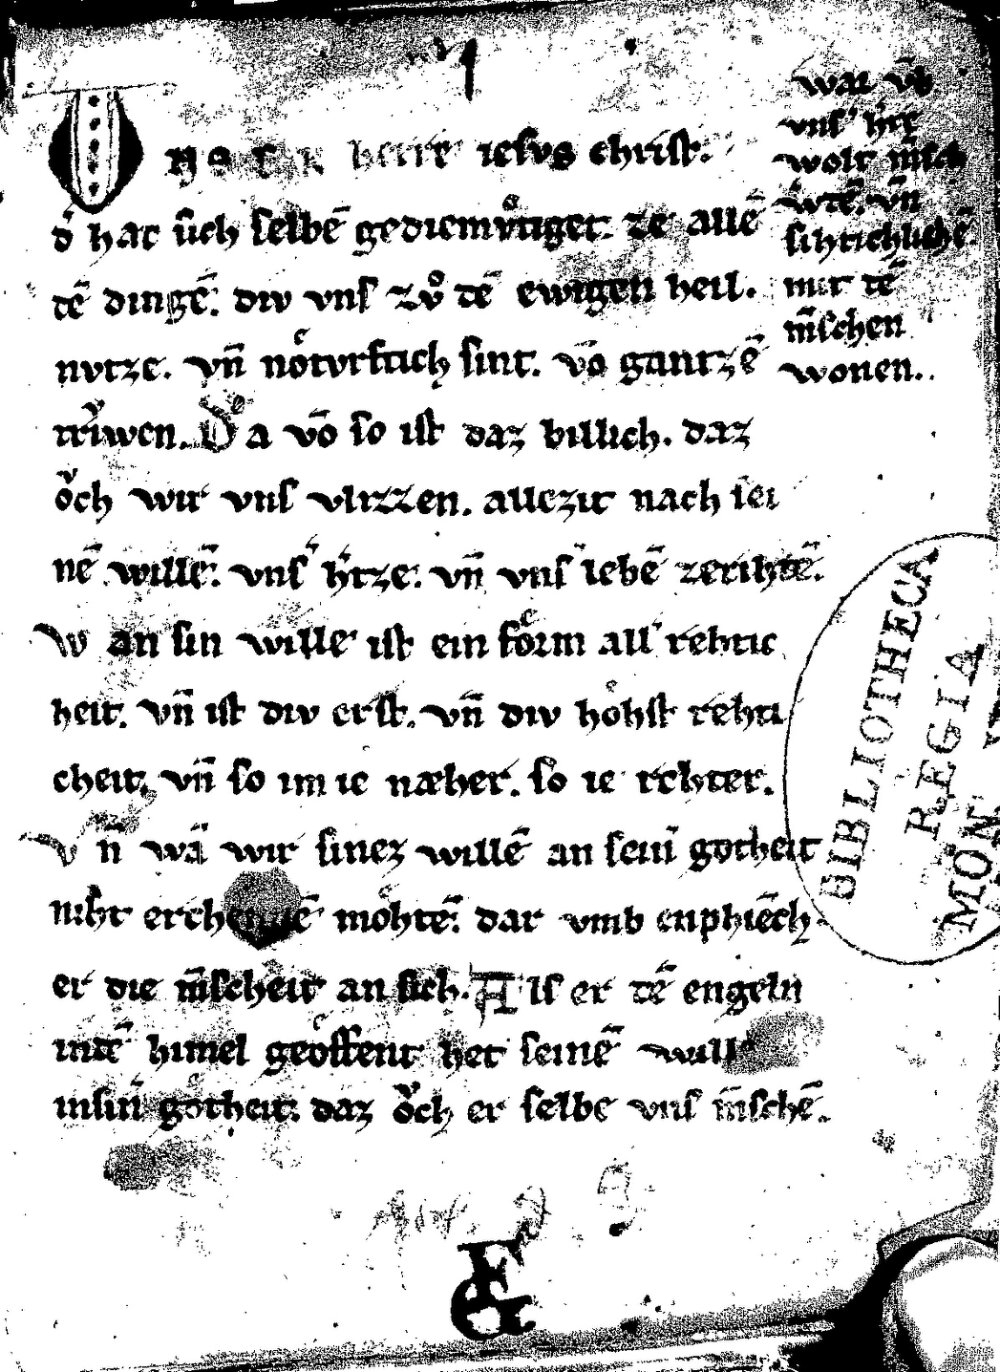 herre iesvs christ.
d̾ hat sich selbē gediemvͤtiget. ze allē
tē dingē. div vns zvͦ tē ewigen heil.
nvtze. vn̄ noͤtvrftich sint. vō gantzē
triwen. Da vō so ist daz billich. daz
oͮch wir vns vlizzen. allezit nach sei
nē willē. vns̾ h̾tze. vn̄ vns̾ lebē zerihtē.
Wan sin wille ist ein foͤrm all̾ rehtic
heit. vn̄ ist div erst. vn̄ div hoͤhst rehti
cheit. vn̄ so im ie næher. so ie rehter.
Vn̄ wā wir sinez willē an sein̄ gotheit
niht erchennē moͤhtē. dar vmb enphiēch
er die m̄scheit an sich. Als er tē engeln
intē himel geoͤffent het seinē will
insin̄ gotheit. daz oͮch er selbe vns m̄schē.
war vn̄
vns̾ h̾re
wolt m̄sch
w̾tē. vn̄
sihtichlichē
mit tē
m̄schen
wonen.
BIBLIOTHECA
REGIA
MON